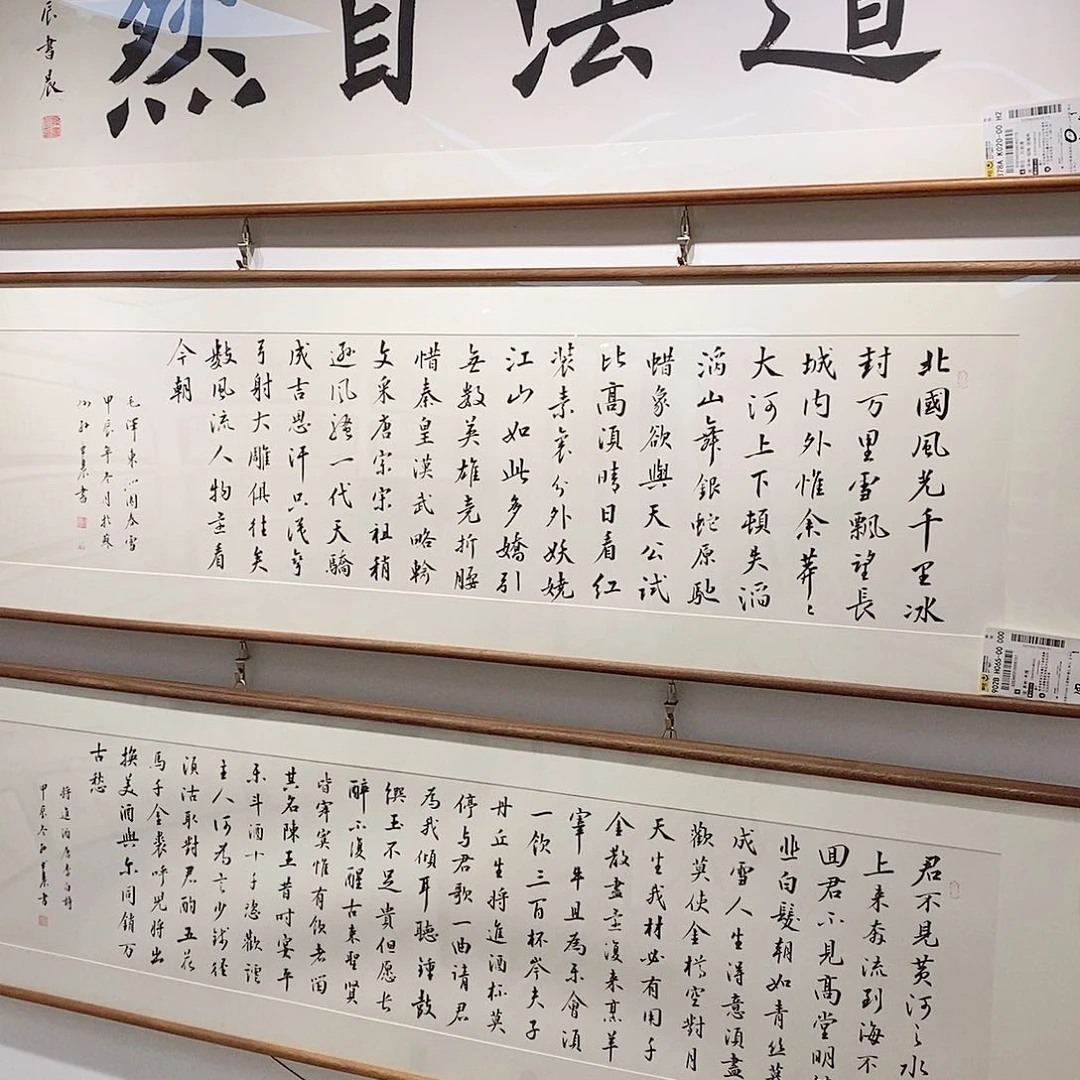 道法自然
辰書晨
北國風光千里冰
封万里雪飄望長
城内外惟余莽〻
大河上下頓失滔
滔山舞銀蛇原馳
蜡象欲與天公試
比高須晴日看紅
装素裹分外妖娆
江山如此多嬌引
無数英雄竞折腰
惜秦皇漢武略輸
文采唐宗宋祖稍
逊風骚一代天驕
成吉思汗只识弯
弓射大雕俱往矣
数風流人物还看
今朝
毛泽東沁園春雪
甲辰年冬月於蘇
州孙晨書
378A K020-00 H2
902B H065-00 000
君不見黄河之水
上来奔流到海不
回君不見高堂明
悲白髮朝如青丝暮
成雪人生得意須盡
歡莫使金樽空對月
天生我材必有用千
金散盡还復来烹羊
宰牛且為乐會須
一饮三百杯岑夫子
丹丘生将進酒杯莫
停与君歌一曲请君
為我傾耳聽鍾鼓
饌玉不足貴但愿长
醉不復醒古来聖贤
皆寂寞惟有饮者留
其名陳王昔时宴平
乐斗酒十千恣歡谑
主人何為言少錢径
須沽取對君酌五花
馬千金裘呼兒将出
换美酒與尔同銷万
古愁
将進酒唐李白詩
甲辰冬孙晨書